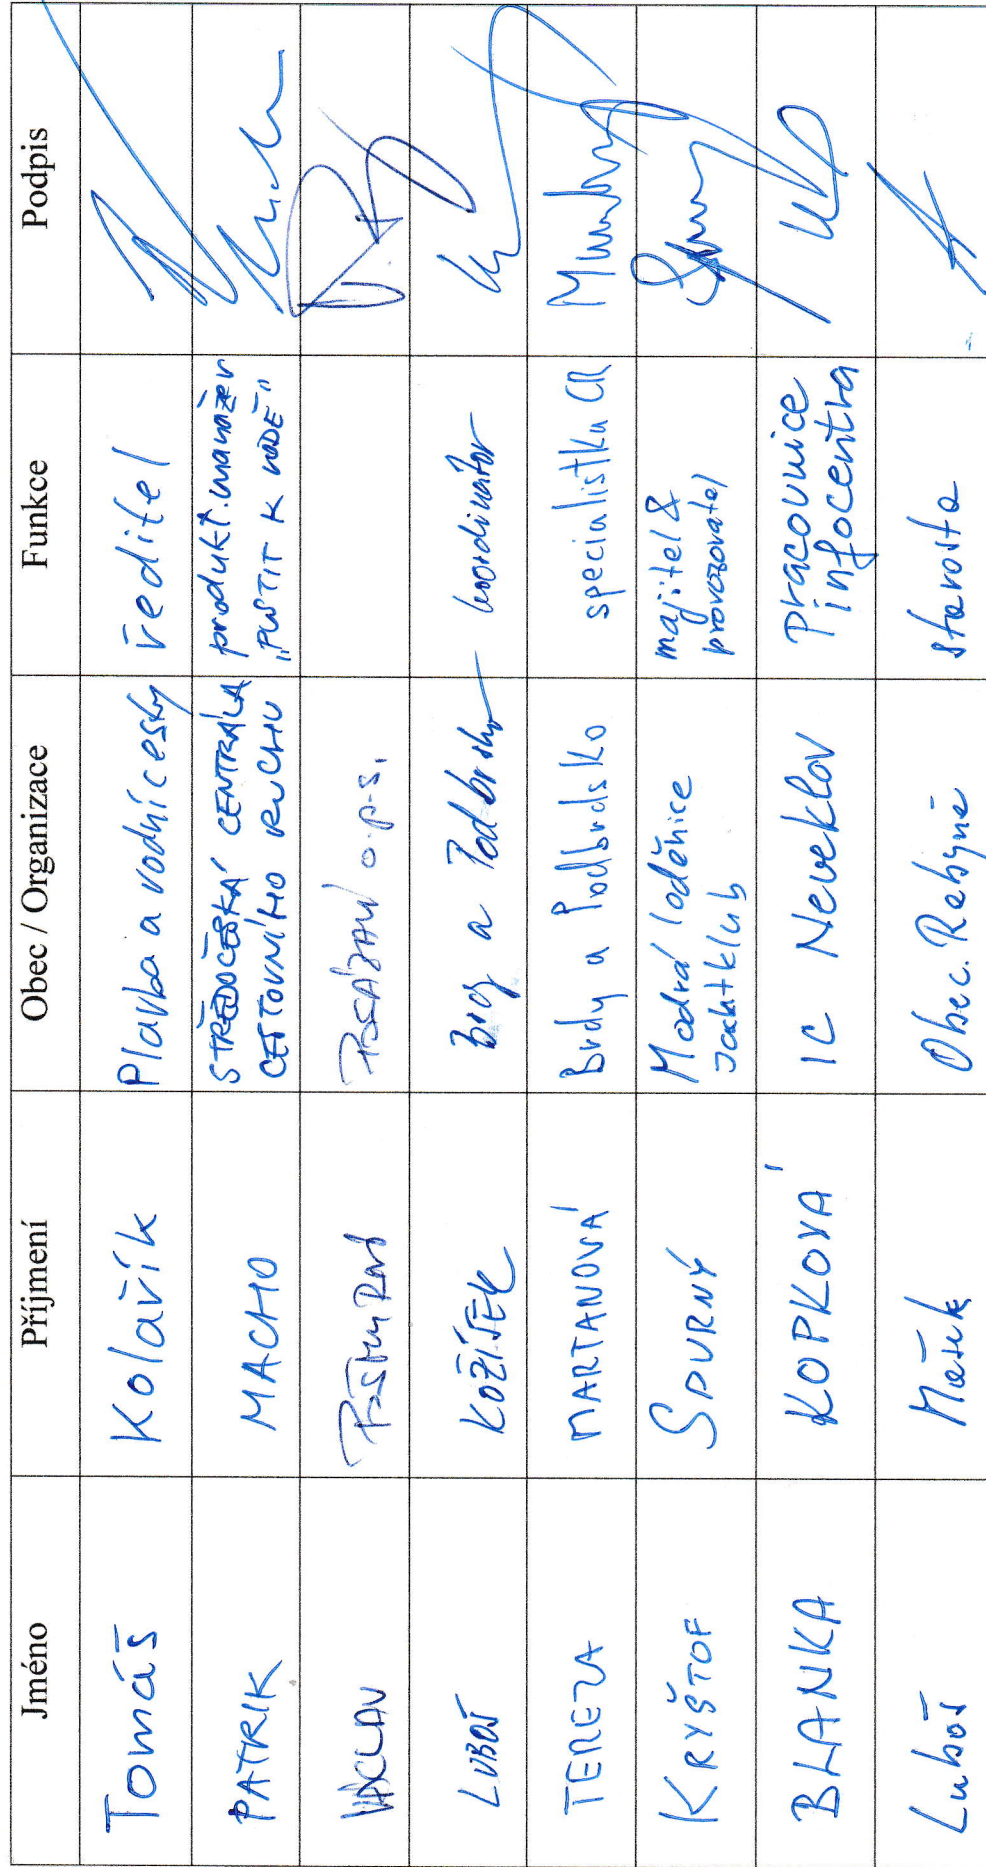 Jméno Příjmení Obec / Organizace Funkce Podpis
Tomáš Kolařík Plavba a vodní cesty ředitel
PATRIK MACHO STŘEDOČESKÁ CENTRÁLA produkt. manažer
CESTOVNÍHO RUCHU „PUSTIT K VODĚ"
VÁCLAV POSÁZAVÍ o.p.s.
LUBOŠ KOŽÍŠEK Brdy a Podbrdsko koordinátor
TEREZA MARTANOVÁ Brdy a Podbrdsko specialistka CR
KRYŠTOF SPURNÝ Modrá loděnice majitel &
Jachtklub provozovatel
BLANKA KOPKOVÁ IC Neveklov pracovnice
infocentra
Luboš Obec Rabyně starosta